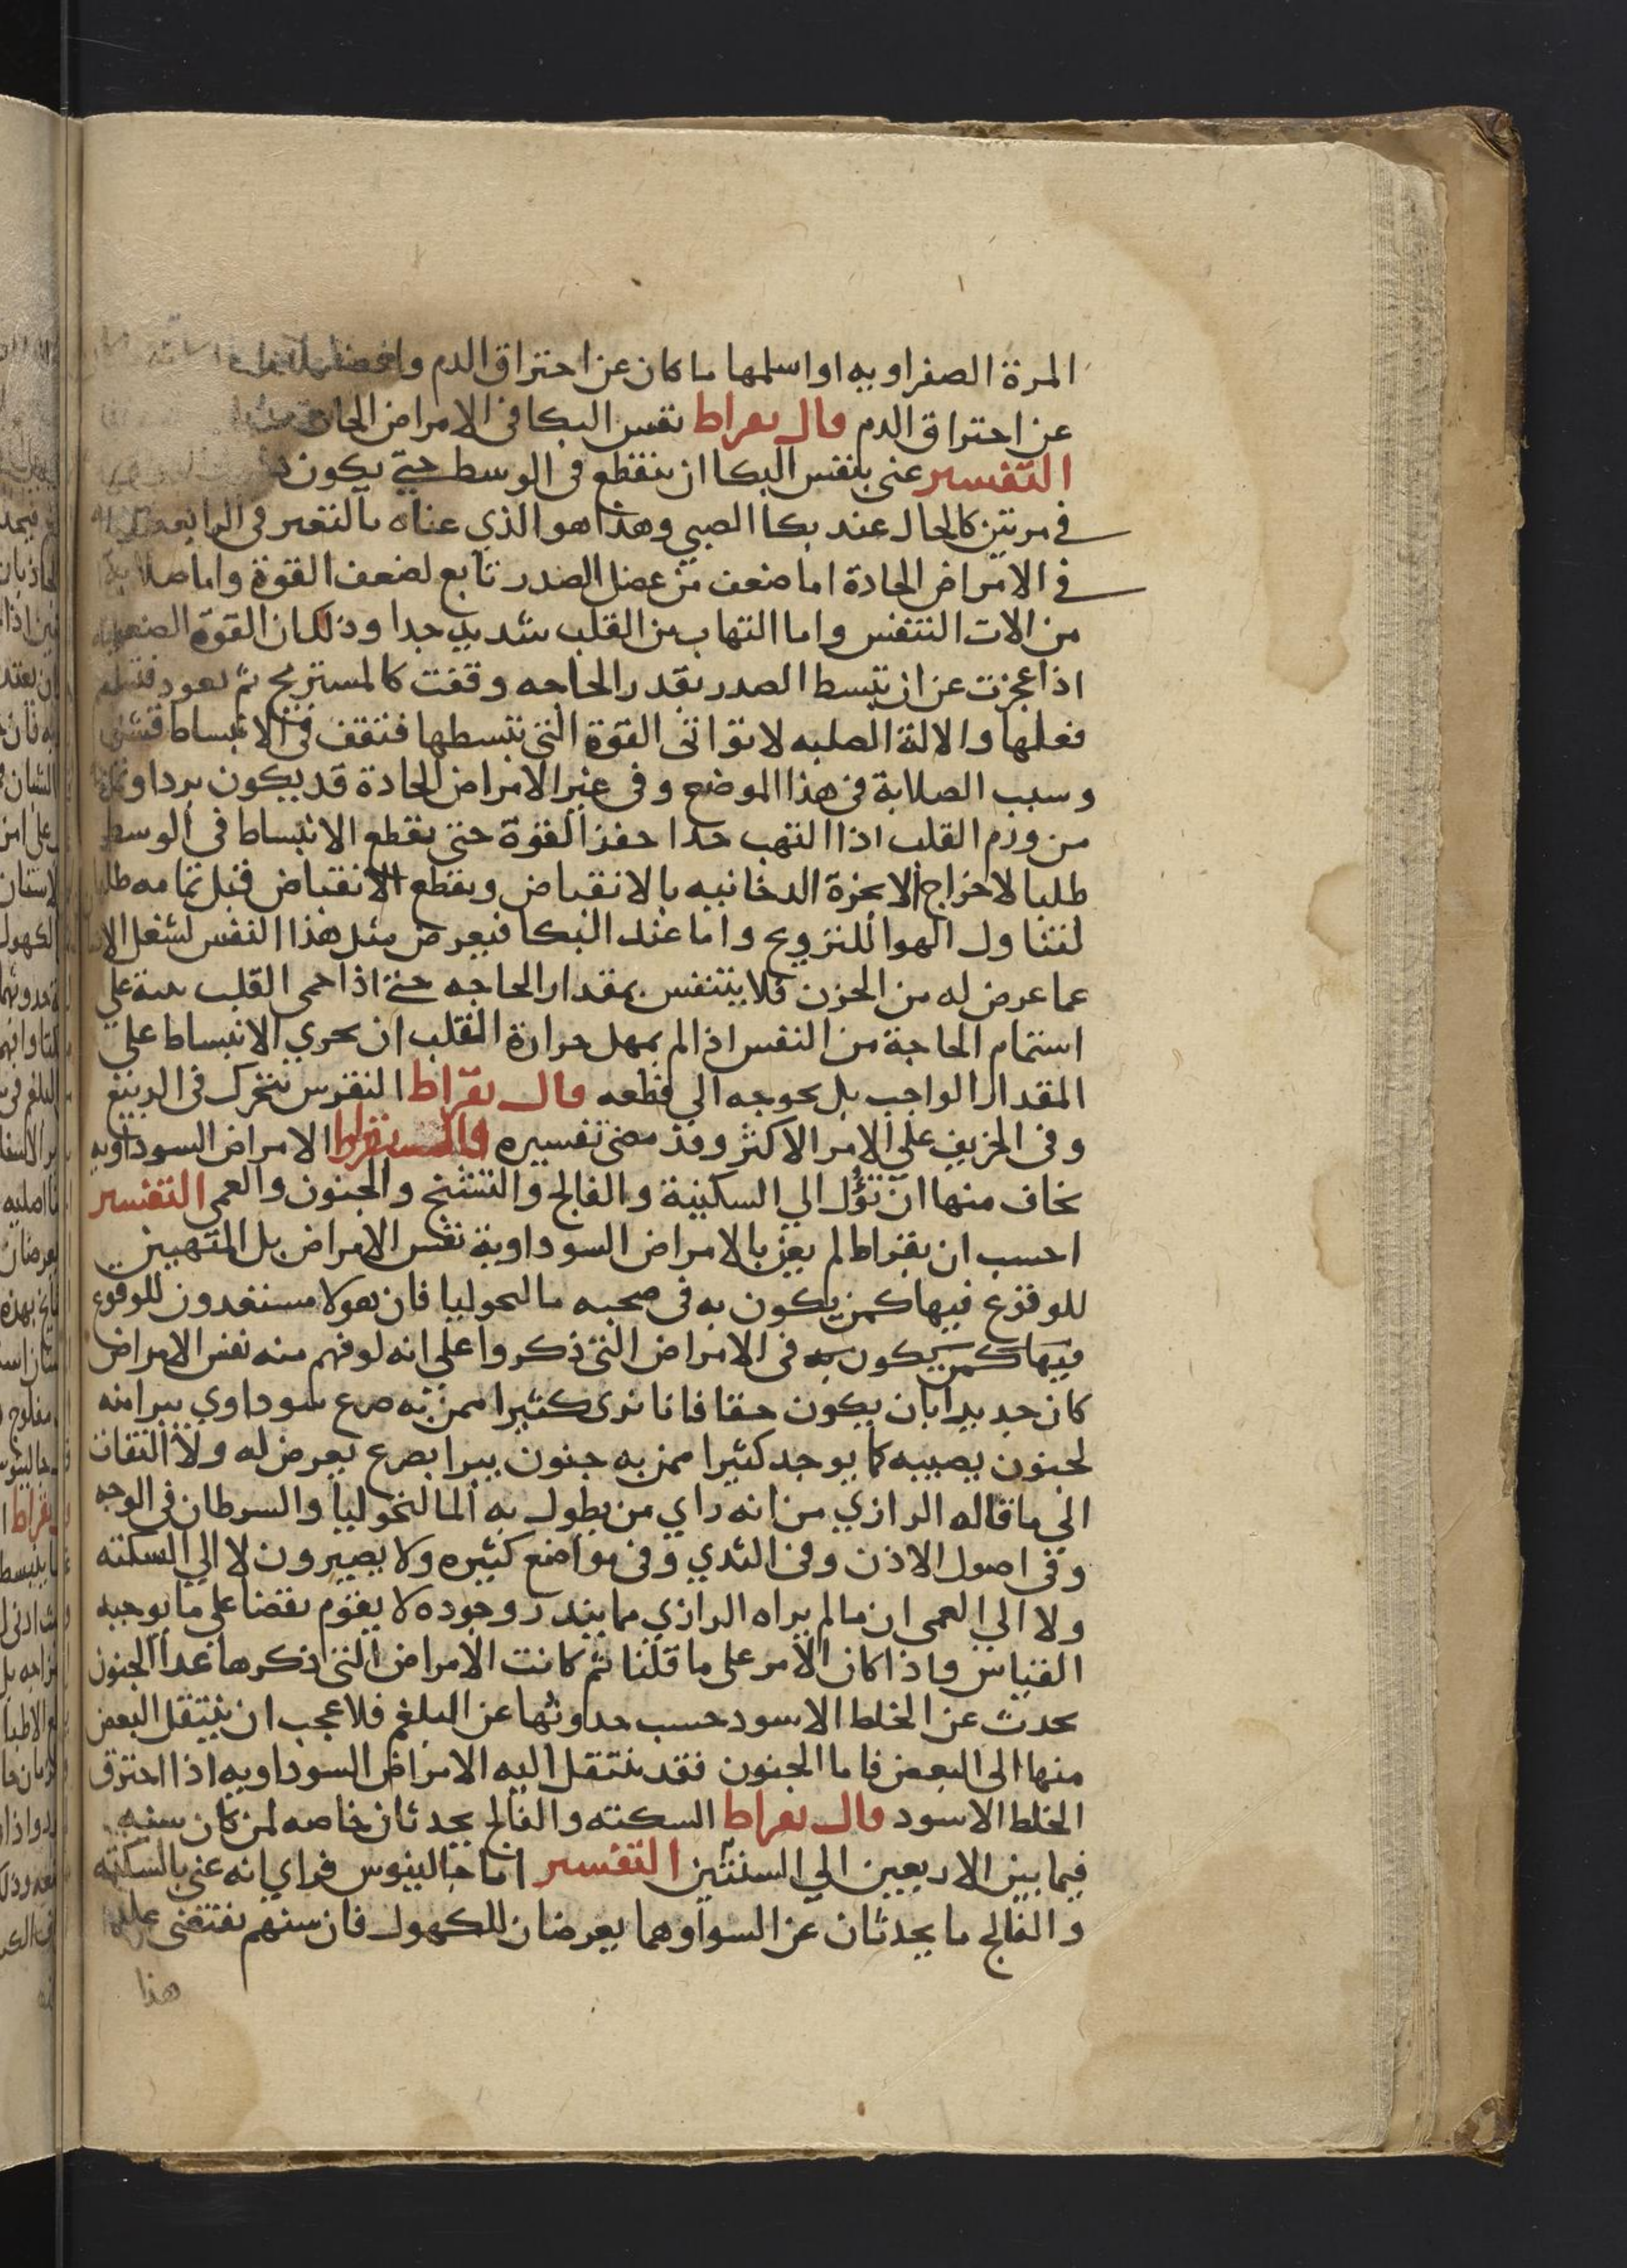 المرة الصفراويه او اسلمها ما كان عن احتراق الدم
عن احتراق الدم قال بقراط نفس البكا فى الامراض الحادة
التفسير عنى بنفس البكا ان ينقطع فى الوسط حتى يكون
فى مرتين كالحال عند بكا الصبي وهذا هو الذي عناه بالتغير فى الرابعه
فى الامراض الحادة اما ضعف من عضل الصدر تابع لضعف القوة واما صلابة
من الات التنفس واما التهاب من القلب شديد جدا وذلك ان القوة الضعيفه
اذا عجزت عن ان تبسط الصدر بقدر الحاجه وقفت كالمستريح ثم تعود فتتم
فعلها والالة الصلبه لا تواتى القوة التى تبسطها فتقف فى الانبساط
وسبب الصلابة فى هذا الموضع وفى غير الامراض الحادة قد يكون بردا
من ورم القلب اذا التهب جدا حفز القوة حتى يقطع الانبساط فى الوسط
طلبا لاخراج الابخرة الدخانيه بالانقباض ويقطع الانقباض قبل تمامه طلبا
لتناول الهوا للترويح واما عند البكا فيعرض مثل هذا النفس لشغل
عما عرض له من الحزن فلا يتنفس بمقدار الحاجه حتى اذا حمى القلب على
استتمام الحاجة من النفس اذ لم يمهل حرارة القلب ان يجري الانبساط على
المقدار الواجب بل يحوجه الي قطعه قال بقراط النقرس يتحرك فى الربيع
وفى الخريف علي الامر الاكثر وقد مضى تفسيره قال بقراط الامراض السوداويه
يخاف منها ان تؤل الي السكينة والفالج والتشنج والجنون والعمى التفسير
احسب ان بقراط لم يعن بالامراض السوداوية نفس الامراض بل المتهيين
للوقوع فيها كمن يكون به فى صحبه مالنحوليا فان هولا مستعدون للوقوع
فيها كمن يكون به فى الامراض التى ذكروا على انه لو فهم منه نفس الامراض
كان جديرا بان يكون حقا فانا نرى كثيرا ممن به صرع سوداوي يبرا منه
لجنون يصيبه كما يوجد كثيرا ممن به جنون يبرا بصرع يعرض له ولا التفات
الي ما قاله الرازي من انه راي من يطول به المالنخوليا والسرطان فى الوجه
وفى اصول الاذن وفى الثدي وفى مواضع كثيره ولا يصيرون لا الي السكته
ولا الي العمى ان ما لم يراه الرازي مما يندر وجوده لا يقوم نقضا على ما يوجبه
القياس واذا كان الامر على ما قلنا ثم كانت الامراض التى ذكرها عدا الجنون
يحدث عن الخلط الاسود حسب حدوثها عن البلغم فلا عجب ان ينتقل البعض
منها الى البعض فاما الجنون فقد ينتقل اليه الامراض السوداويه اذا احترق
الخلط الاسود قال بقراط السكته والفالج يحدثان خاصه لمن كان سنه
فيما بين الاربعين الي الستين التفسير اما جالينوس فراي انه عنى بالسكته
والفالج ما يحدثان عن السوا وهما يعرضان للكهول فان سنهم تقتضى
هذا